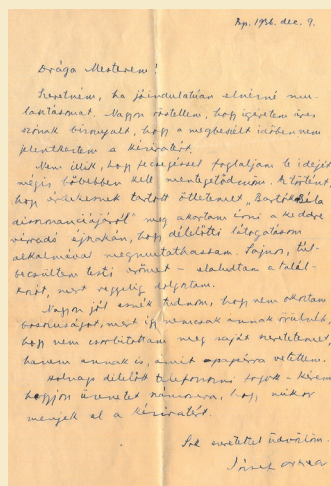 Bp. 1936. dec. 9.
Drága Mesterem!
Szeretném, ha jóindulatúan elnézné mu-
lasztásomat. Nagyon röstellem, hogy igéretem üres
szónak bizonyult, hogy a megbeszélt időben nem
jelentkeztem a kéziratért.
Nem illik, hogy fecsegéssel foglaljam le idejét
mégis bővebben kell mentegetődznöm. Az történt,
hogy érdekesnek tartott ötletemet „Bartók Béla
disszonanciájáról" meg akartam írni a keddre
virradó éjszakán, hogy délelőtti látogatásom
alkalmával megmutathassam. Sajnos, túl-
becsültem testi erőmet - elaludtam a talál-
kozót, mert reggelig dolgoztam.
Nagyon jól esnék tudnom, hogy nem okoztam
bosszúságot, mert így nemcsak annak örülnék,
hogy nem csorbítottam meg saját szeretetemet,
hanem annak is, amit papírra vetettem.
Holnap délelőtt telefonozni fogok - kérem
hagyjon üzenetet számomra, hogy mikor
menjek el a kéziratért.
Sok szeretettel üdvözlöm
József Attila